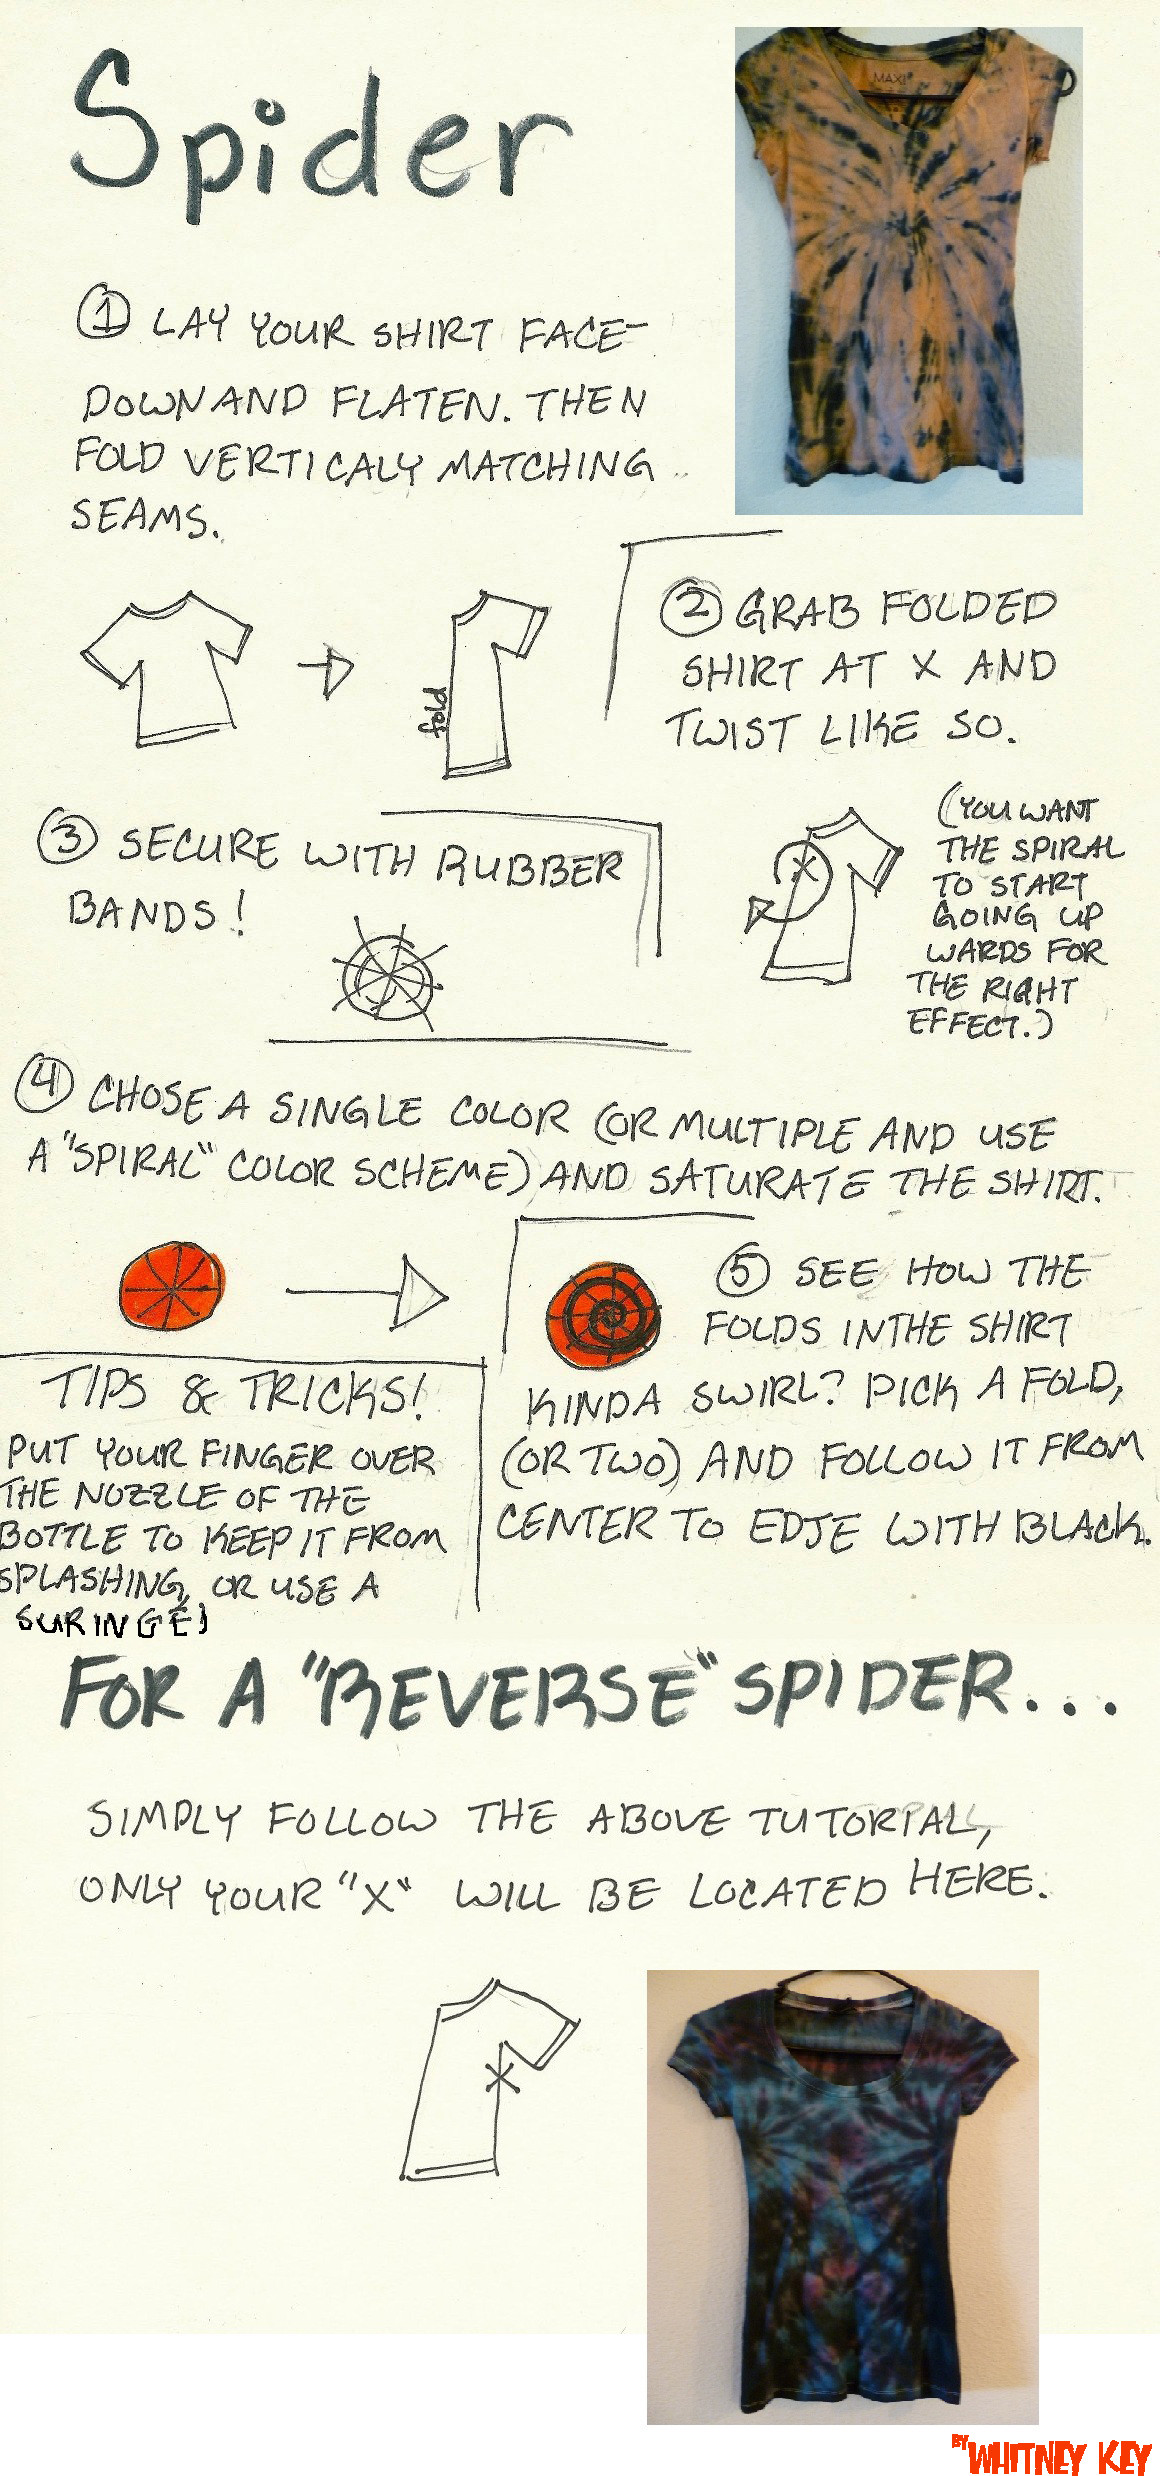 Spider
MAXI
① LAY YOUR SHIRT FACE-
DOWN AND FLATEN. THEN
FOLD VERTICALY MATCHING
SEAMS.
fold
② GRAB FOLDED
SHIRT AT X AND
TWIST LIKE SO.
X
(YOU WANT
THE SPIRAL
TO START
GOING UP
WARDS FOR
THE RIGHT
EFFECT.)
③ SECURE WITH RUBBER
BANDS!
④ CHOSE A SINGLE COLOR (OR MULTIPLE AND USE
A "SPIRAL" COLOR SCHEME) AND SATURATE THE SHIRT.
⑤ SEE HOW THE
FOLDS INTHE SHIRT
KINDA SWIRL? PICK A FOLD,
(OR TWO) AND FOLLOW IT FROM
CENTER TO EDJE WITH BLACK.
TIPS & TRICKS!
PUT YOUR FINGER OVER
THE NOZZLE OF THE
BOTTLE TO KEEP IT FROM
SPLASHING, OR USE A
SURINGE)
FOR A "REVERSE" SPIDER...
SIMPLY FOLLOW THE ABOVE TUTORIAL,
ONLY YOUR "X" WILL BE LOCATED HERE.
X
BY WHITNEY KEY